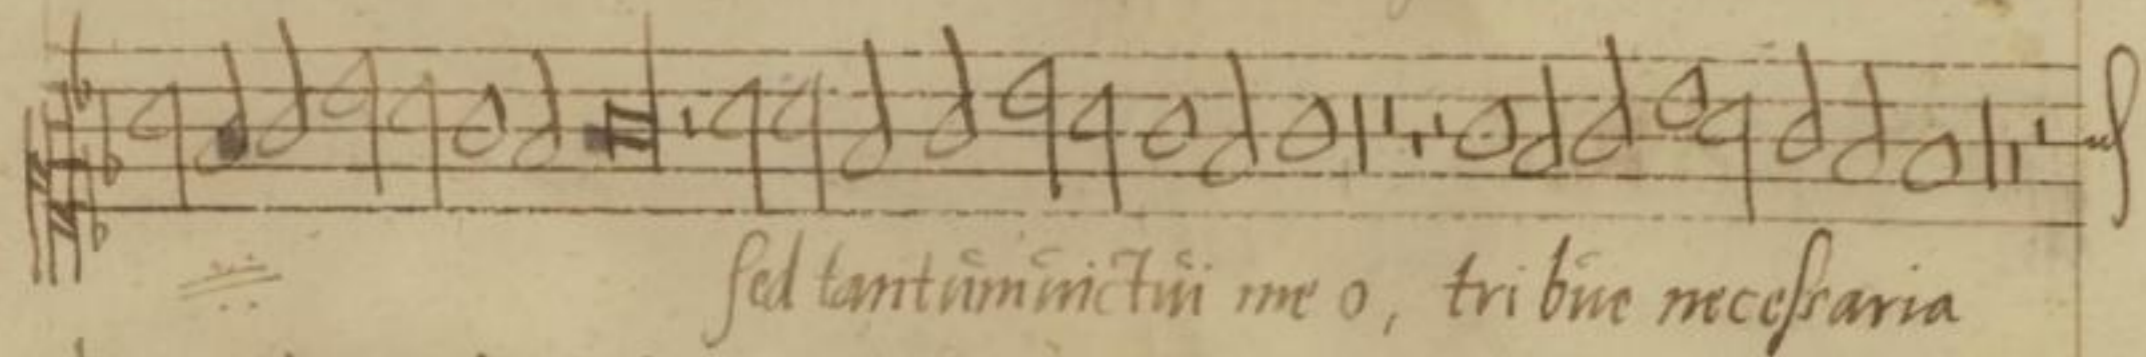 sed tantum uictui meo, tribue necessaria